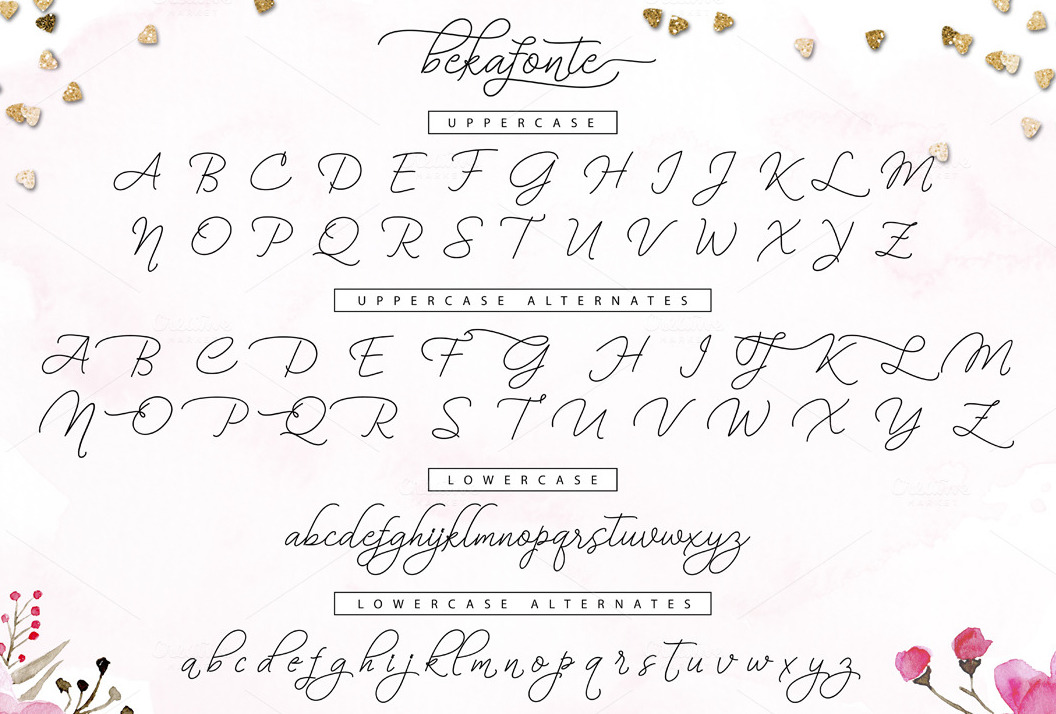 bekafonte
UPPERCASE
A B C D E F G H I J K L M
N O P Q R S T U V W X Y Z
UPPERCASE ALTERNATES
A B C D E F G H I J K L M
N O P Q R S T U V W X Y Z
LOWERCASE
abcdefghijklmnopqrstuvwxyz
LOWERCASE ALTERNATES
a b c d e f g h i j k l m n o p q r s t u v w x y z